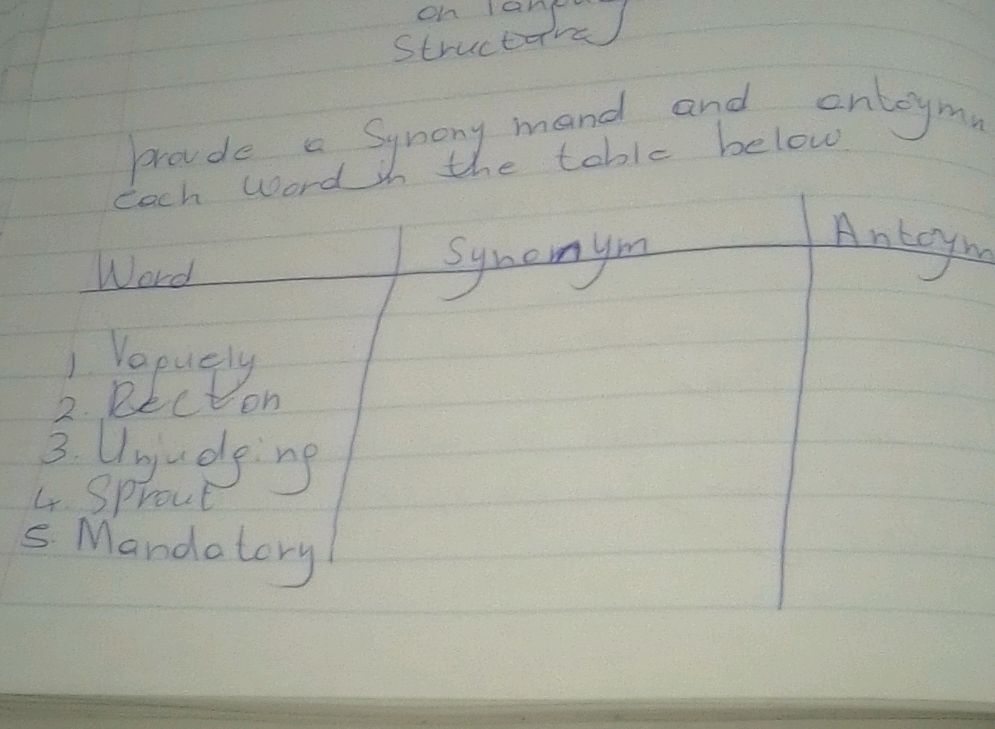 on
Structure
provde a Synony mand and antoymn
Each word in the table below.
Word Synonym Antoym
1. Vaguely
2. Beckon
3. Unjudging
4. Sprout
5. Mandatory